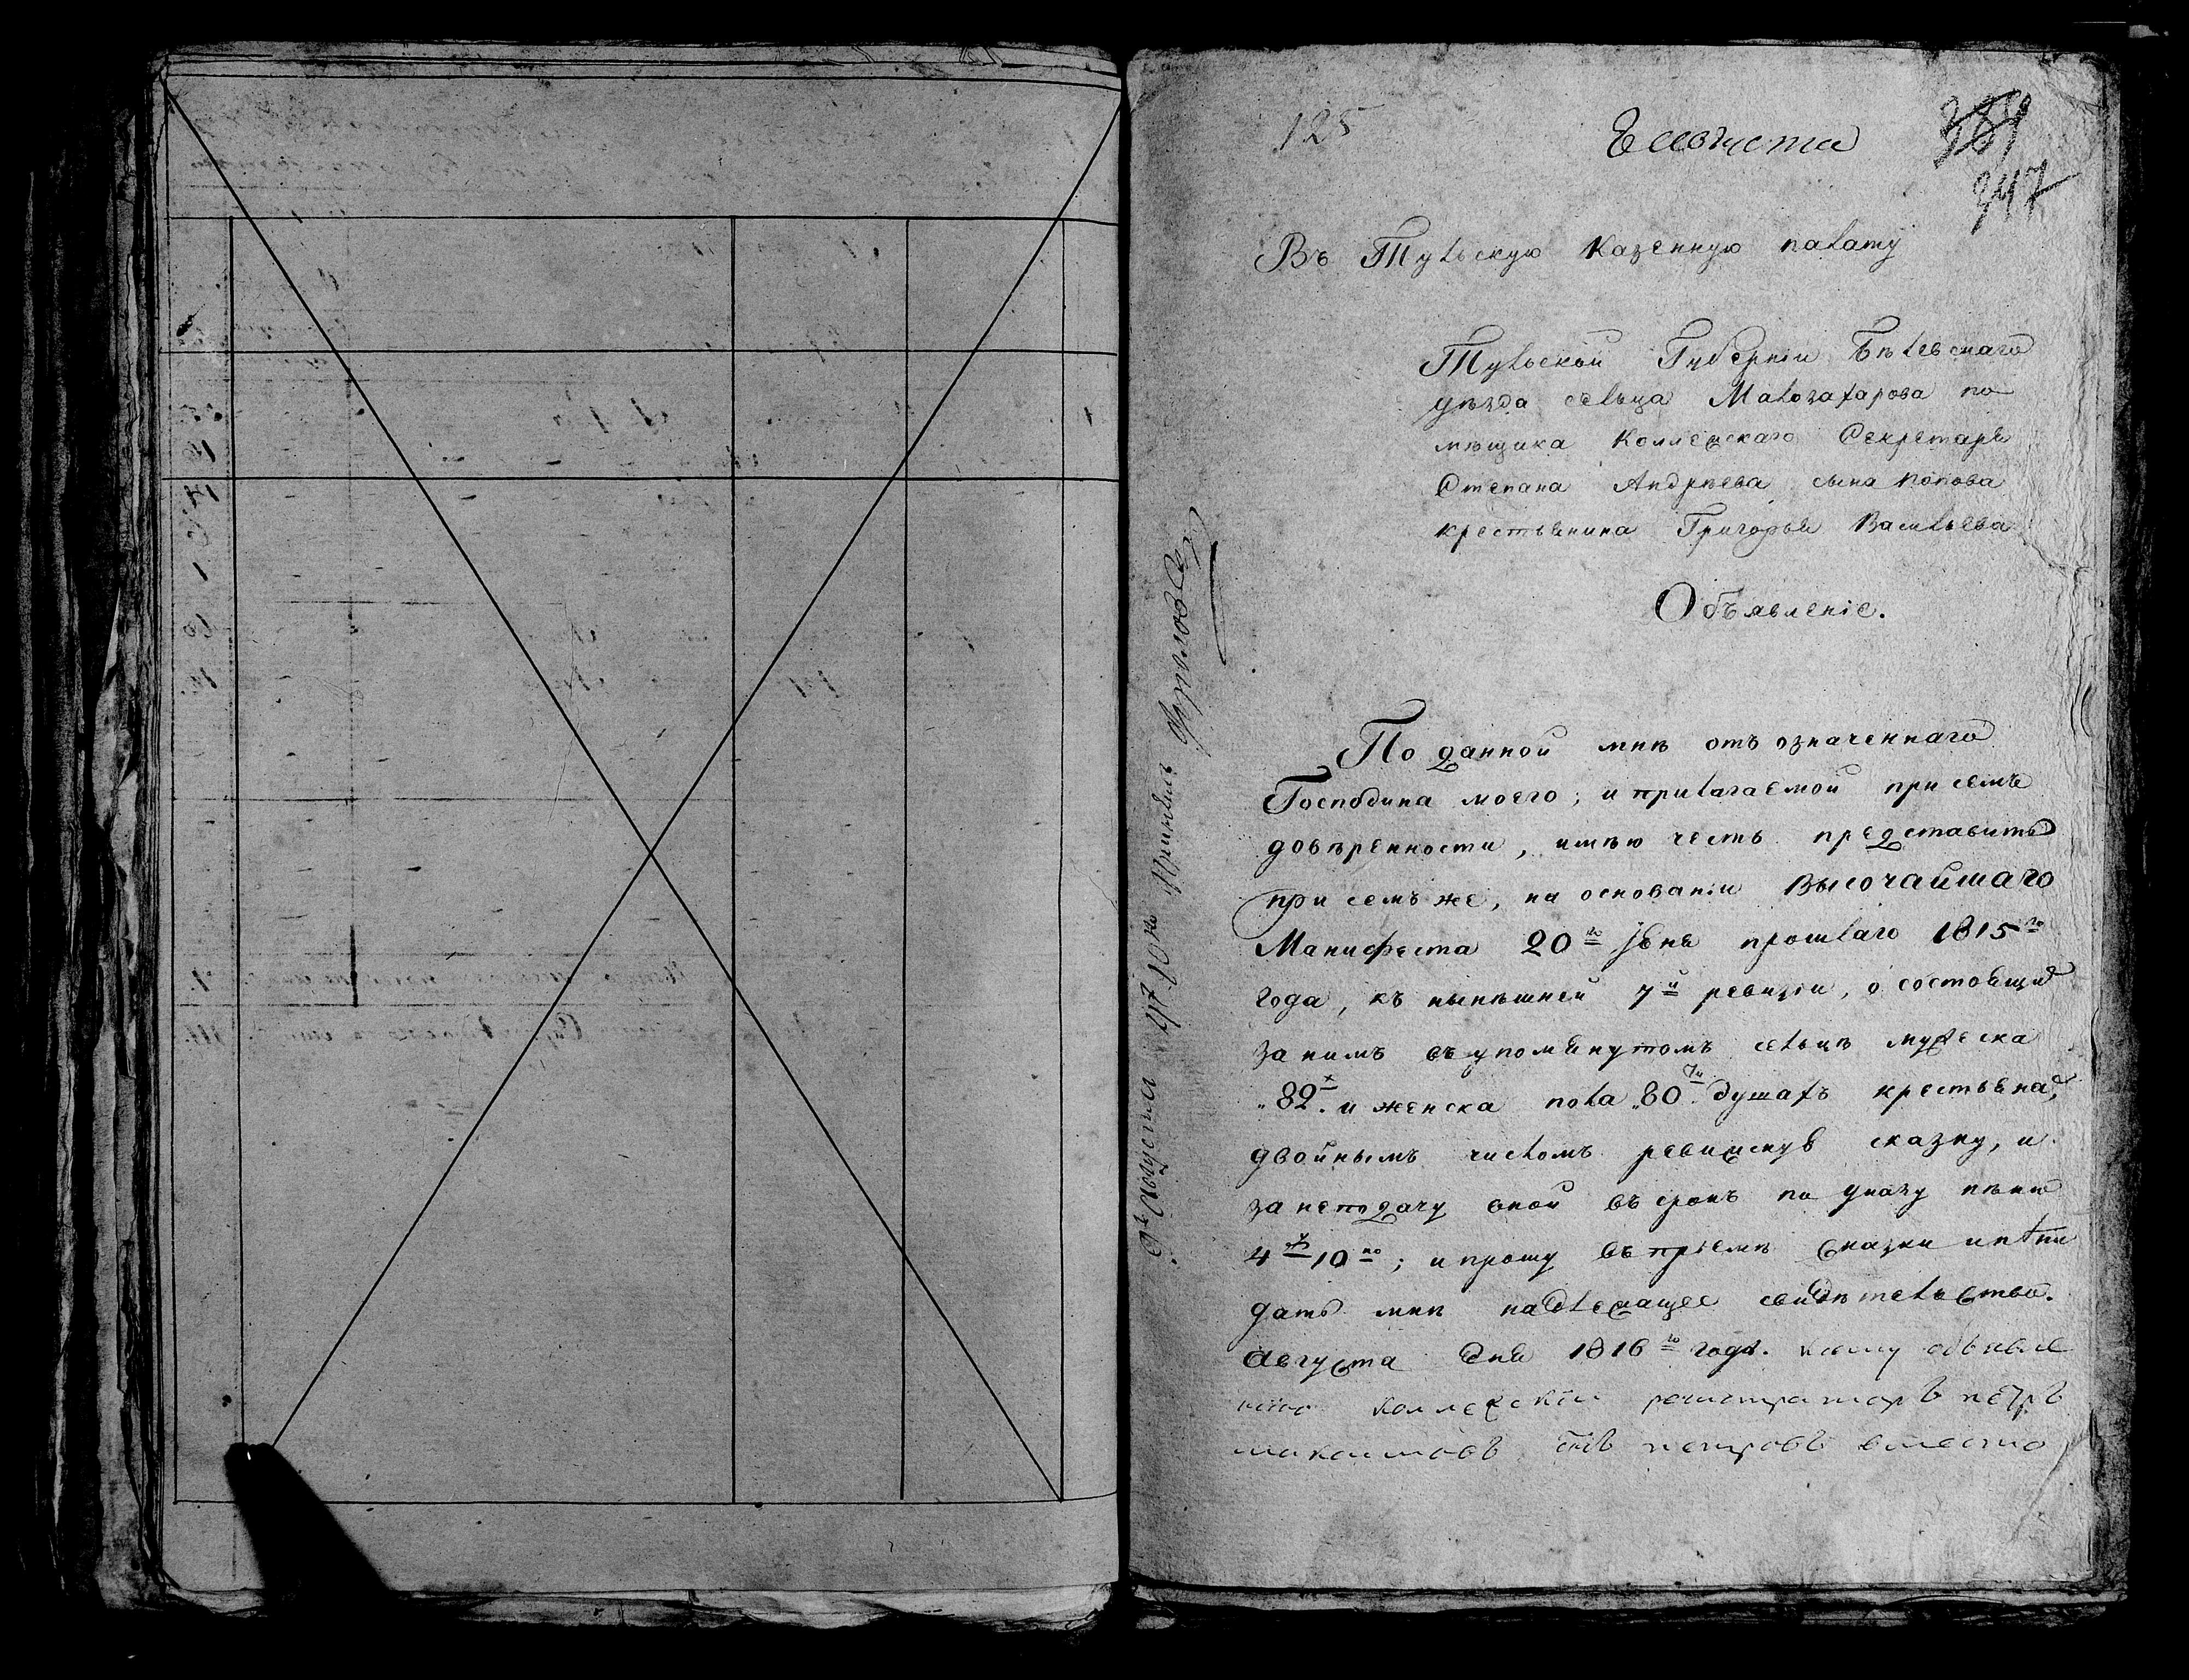 125
8 августа
389
347
Въ Тульскую Казенную палату
Тульской Губерніи Бѣлевскаго
уѣзда сельца Малозахарова по
мѣщика Коллежскаго Секретаря
Степана Андрѣева сына Попова
крестьянина Григорья Васильева
Объявленіе.
По данной мнѣ отъ означеннаго
Господина моего; и прилагаемой при семъ
довѣренности, имѣю честь представить
при семъ же, на основаніи Высочайшаго
Манифеста 20го Іюня прошлаго 1815го
года, къ нынѣшней 7й ревизіи, о состоящих
за нимъ въ упомянутомъ сельцѣ мужеска
„82х. и женска пола „80ти. душахъ крестьянах,
двойнымъ числомъ ревижскую сказку, и
за неподачу оной въ срокъ по указу пѣню
4 р 10 ко; и прошу въ пріемѣ сказки и пѣни
дать мнѣ надлежащее свидѣтельство.
Августа дня 1816го года. к сему объявле
нію коллежскіи регистраторъ петръ
максимовъ снъ петровъ вместо
Августа 4р 10 ко Принялъ